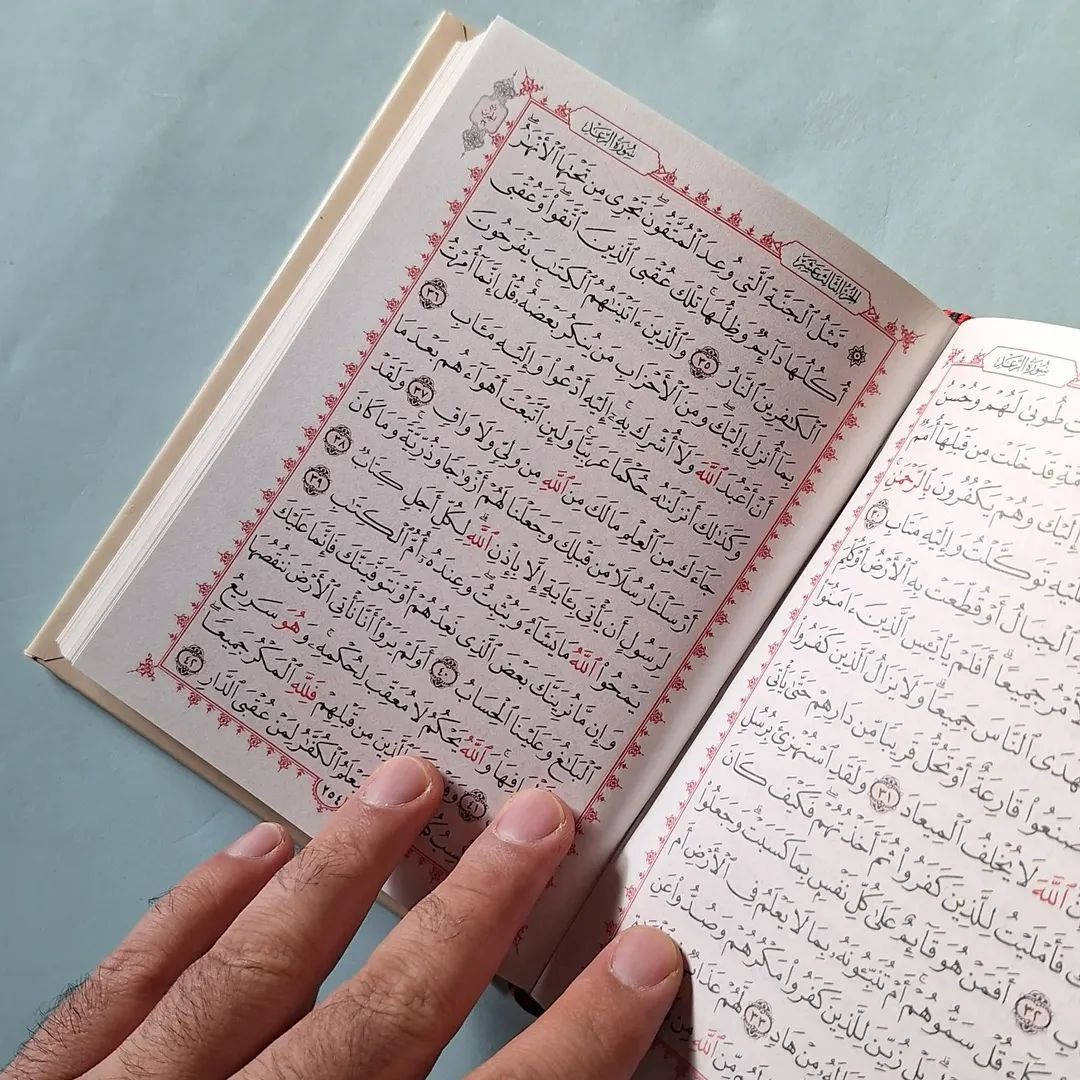 سُورَةُ الرَّعْدِ
طُوبَىٰ لَهُمْ وَحُسْنُ
قَدْ خَلَتْ مِن قَبْلِهَآ أُمَمٌ
إِلَيْكَ وَهُمْ يَكْفُرُونَ بِٱلرَّحْمَٰنِ
عَلَيْهِ تَوَكَّلْتُ وَإِلَيْهِ مَتَابِ ٣٠
ٱلْجِبَالُ أَوْ قُطِّعَتْ بِهِ ٱلْأَرْضُ أَوْ كُلِّمَ
ٱلْأَمْرُ جَمِيعًا ۗ أَفَلَمْ يَا۟يْـَٔسِ ٱلَّذِينَ ءَامَنُوٓا۟
لَهَدَى ٱلنَّاسَ جَمِيعًا ۗ وَلَا يَزَالُ ٱلَّذِينَ كَفَرُوا۟
صَنَعُوا۟ قَارِعَةٌ أَوْ تَحُلُّ قَرِيبًا مِّن دَارِهِمْ حَتَّىٰ يَأْتِىَ
ٱللَّهَ لَا يُخْلِفُ ٱلْمِيعَادَ ٣١ وَلَقَدِ ٱسْتُهْزِئَ بِرُسُلٍ
فَأَمْلَيْتُ لِلَّذِينَ كَفَرُوا۟ ثُمَّ أَخَذْتُهُمْ ۖ فَكَيْفَ كَانَ
٣٢ أَفَمَنْ هُوَ قَآئِمٌ عَلَىٰ كُلِّ نَفْسٍۭ بِمَا كَسَبَتْ ۗ وَجَعَلُوا۟
قُلْ سَمُّوهُمْ ۚ أَمْ تُنَبِّـُٔونَهُۥ بِمَا لَا يَعْلَمُ فِى ٱلْأَرْضِ أَم
بَلْ زُيِّنَ لِلَّذِينَ كَفَرُوا۟ مَكْرُهُمْ وَصُدُّوا۟ عَنِ
مِنْ هَادٍ ٣٣ لَّهُمْ عَذَابٌ
ٱللَّهِ مِن
الجُزْءُ الثَّالِثَ عَشَرَ
سُورَةُ الرَّعْدِ
۞ مَّثَلُ ٱلْجَنَّةِ ٱلَّتِى وُعِدَ ٱلْمُتَّقُونَ ۖ تَجْرِى مِن تَحْتِهَا ٱلْأَنْهَٰرُ ۖ
أُكُلُهَا دَآئِمٌ وَظِلُّهَا ۚ تِلْكَ عُقْبَى ٱلَّذِينَ ٱتَّقَوا۟ ۖ وَّعُقْبَى
ٱلْكَٰفِرِينَ ٱلنَّارُ ٣٥ وَٱلَّذِينَ ءَاتَيْنَٰهُمُ ٱلْكِتَٰبَ يَفْرَحُونَ
بِمَآ أُنزِلَ إِلَيْكَ ۖ وَمِنَ ٱلْأَحْزَابِ مَن يُنكِرُ بَعْضَهُۥ ۚ قُلْ إِنَّمَآ أُمِرْتُ
أَنْ أَعْبُدَ ٱللَّهَ وَلَآ أُشْرِكَ بِهِۦٓ ۚ إِلَيْهِ أَدْعُوا۟ وَإِلَيْهِ مَـَٔابِ ٣٦
وَكَذَٰلِكَ أَنزَلْنَٰهُ حُكْمًا عَرَبِيًّا ۚ وَلَئِنِ ٱتَّبَعْتَ أَهْوَآءَهُم بَعْدَمَا
جَآءَكَ مِنَ ٱلْعِلْمِ مَا لَكَ مِنَ ٱللَّهِ مِن وَلِىٍّ وَلَا وَاقٍ ٣٧ وَلَقَدْ
أَرْسَلْنَا رُسُلًا مِّن قَبْلِكَ وَجَعَلْنَا لَهُمْ أَزْوَٰجًا وَذُرِّيَّةً ۚ وَمَا كَانَ
لِرَسُولٍ أَن يَأْتِىَ بِـَٔايَةٍ إِلَّا بِإِذْنِ ٱللَّهِ ۗ لِكُلِّ أَجَلٍ كِتَابٌ ٣٨
يَمْحُوا۟ ٱللَّهُ مَا يَشَآءُ وَيُثْبِتُ ۖ وَعِندَهُۥٓ أُمُّ ٱلْكِتَٰبِ ٣٩
وَإِن مَّا نُرِيَنَّكَ بَعْضَ ٱلَّذِى نَعِدُهُمْ أَوْ نَتَوَفَّيَنَّكَ فَإِنَّمَا عَلَيْكَ
ٱلْبَلَٰغُ وَعَلَيْنَا ٱلْحِسَابُ ٤٠ أَوَلَمْ يَرَوْا۟ أَنَّا نَأْتِى ٱلْأَرْضَ نَنقُصُهَا
أَطْرَافِهَا ۚ وَٱللَّهُ يَحْكُمُ لَا مُعَقِّبَ لِحُكْمِهِۦ ۚ وَهُوَ سَرِيعُ
٤١ وَقَدْ ٱلَّذِينَ مِن قَبْلِهِمْ فَلِلَّهِ ٱلْمَكْرُ جَمِيعًا ۖ
تَكْسِبُ كُلُّ ٱلْكُفَّٰرُ لِمَنْ عُقْبَى ٱلدَّارِ ٤٢
٢٥٤